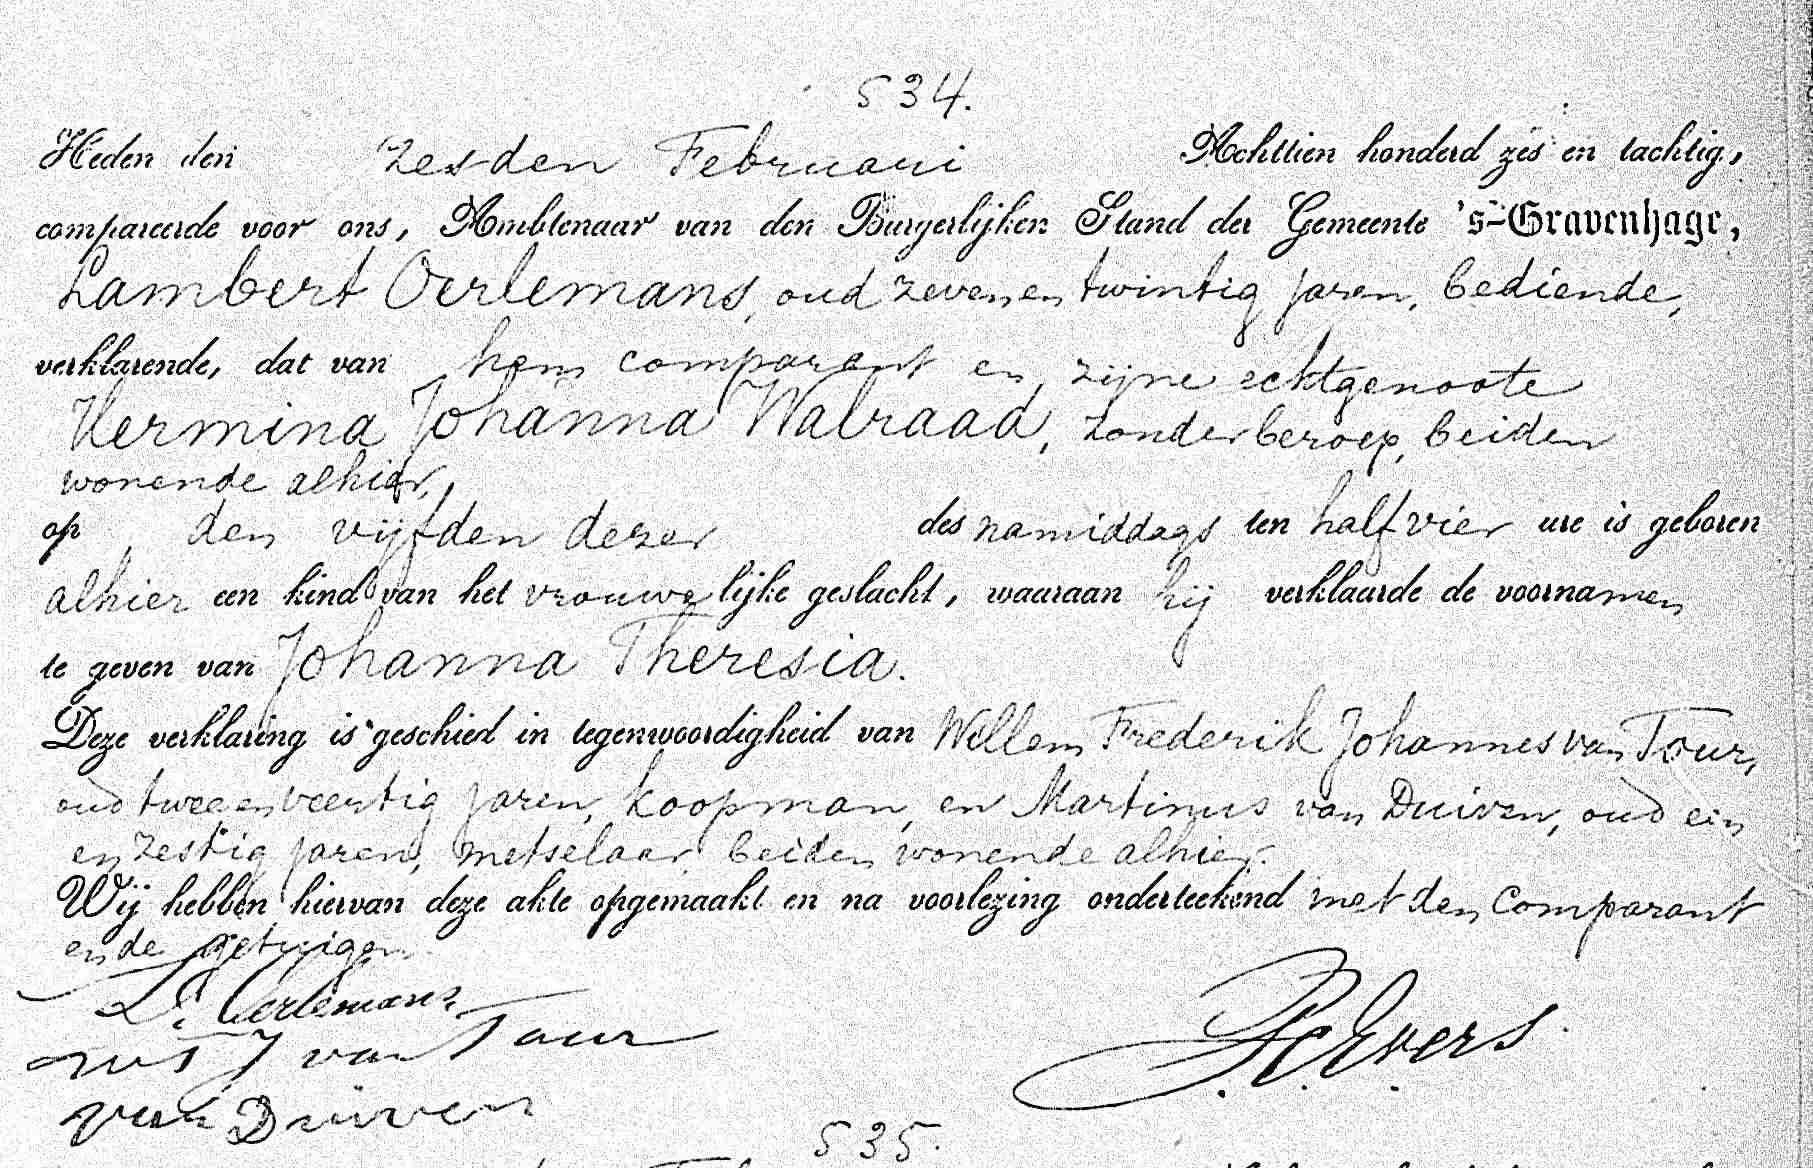 534.
Heden den zesden Februari Achttien honderd zes en tachtig,
compareerde voor ons, Ambtenaar van den Burgerlijken Stand der Gemeente 's-Gravenhage,
Lambert Oerlemans, oud zeven en twintig jaren, bediende,
verklarende, dat van hem comparant en zijne echtgenoote
Hermina Johanna Walraad, zonder beroep, beiden
wonende alhier,
op den vijfden dezer des namiddags ten half vier ure is geboren
alhier een kind van het vrouwelijke geslacht, waaraan hij verklaarde de voornamen
te geven van Johanna Theresia.
Deze verklaring is geschied in tegenwoordigheid van Willem Frederik Johannes van Tour,
oud twee en veertig jaren, koopman, en Martinus van Duiven, oud een
en zestig jaren, metselaar beiden wonende alhier.
Wij hebben hiervan deze akte opgemaakt en na voorlezing onderteekend met den Comparant
en de getuigen.
L. Oerlemans
J van Tour
van Duiven
Evers
535.